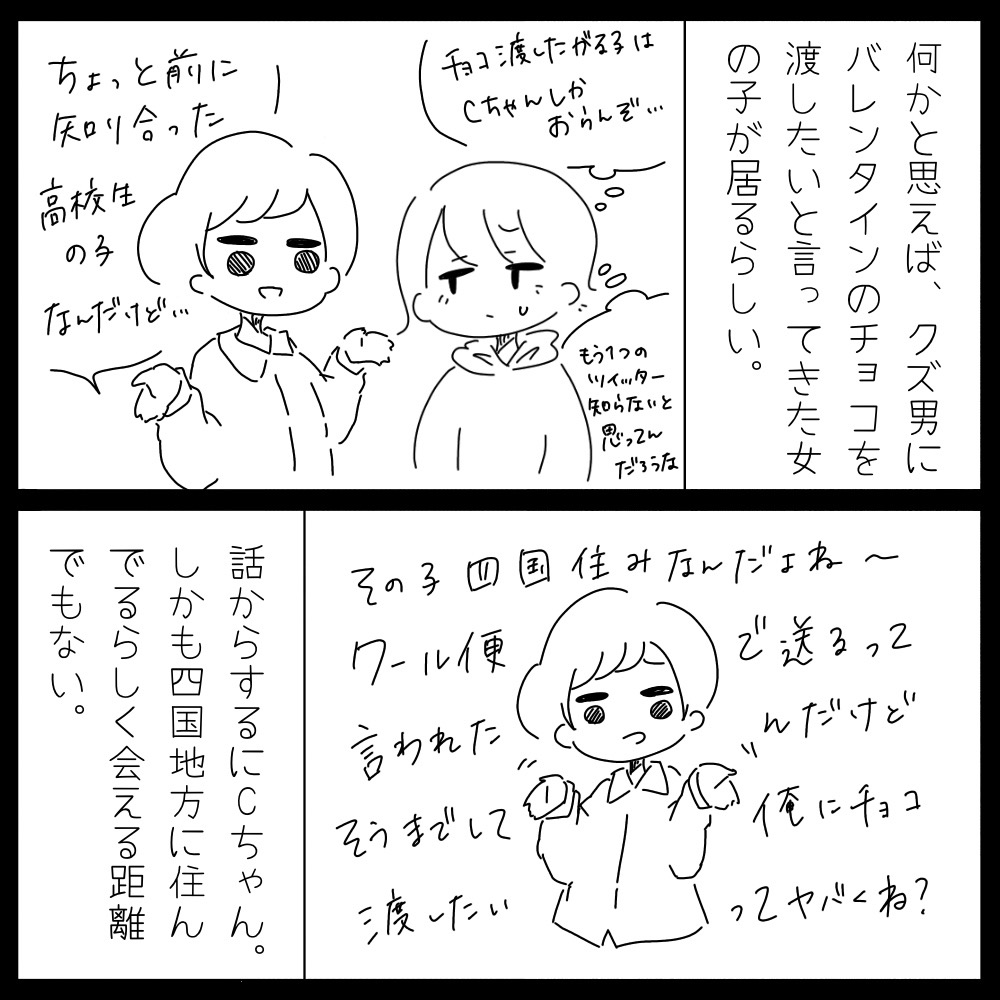 何かと思えば、クズ男に
バレンタインのチョコを
渡したいと言ってきた女
の子が居るらしい。
チョコ渡したがる子は
Cちゃんしか
おらんぞ…
もう1つの
ツイッター
知らないと
思ってん
だろうな
ちょっと前に
知り合った
高校生
の子
なんだけど…
その子四国住みなんだよね〜
クール便で送るって
言われたんだけど
そうまでして俺にチョコ
渡したいってヤバくね?
話からするにCちゃん。
しかも四国地方に住ん
でるらしく会える距離
でもない。